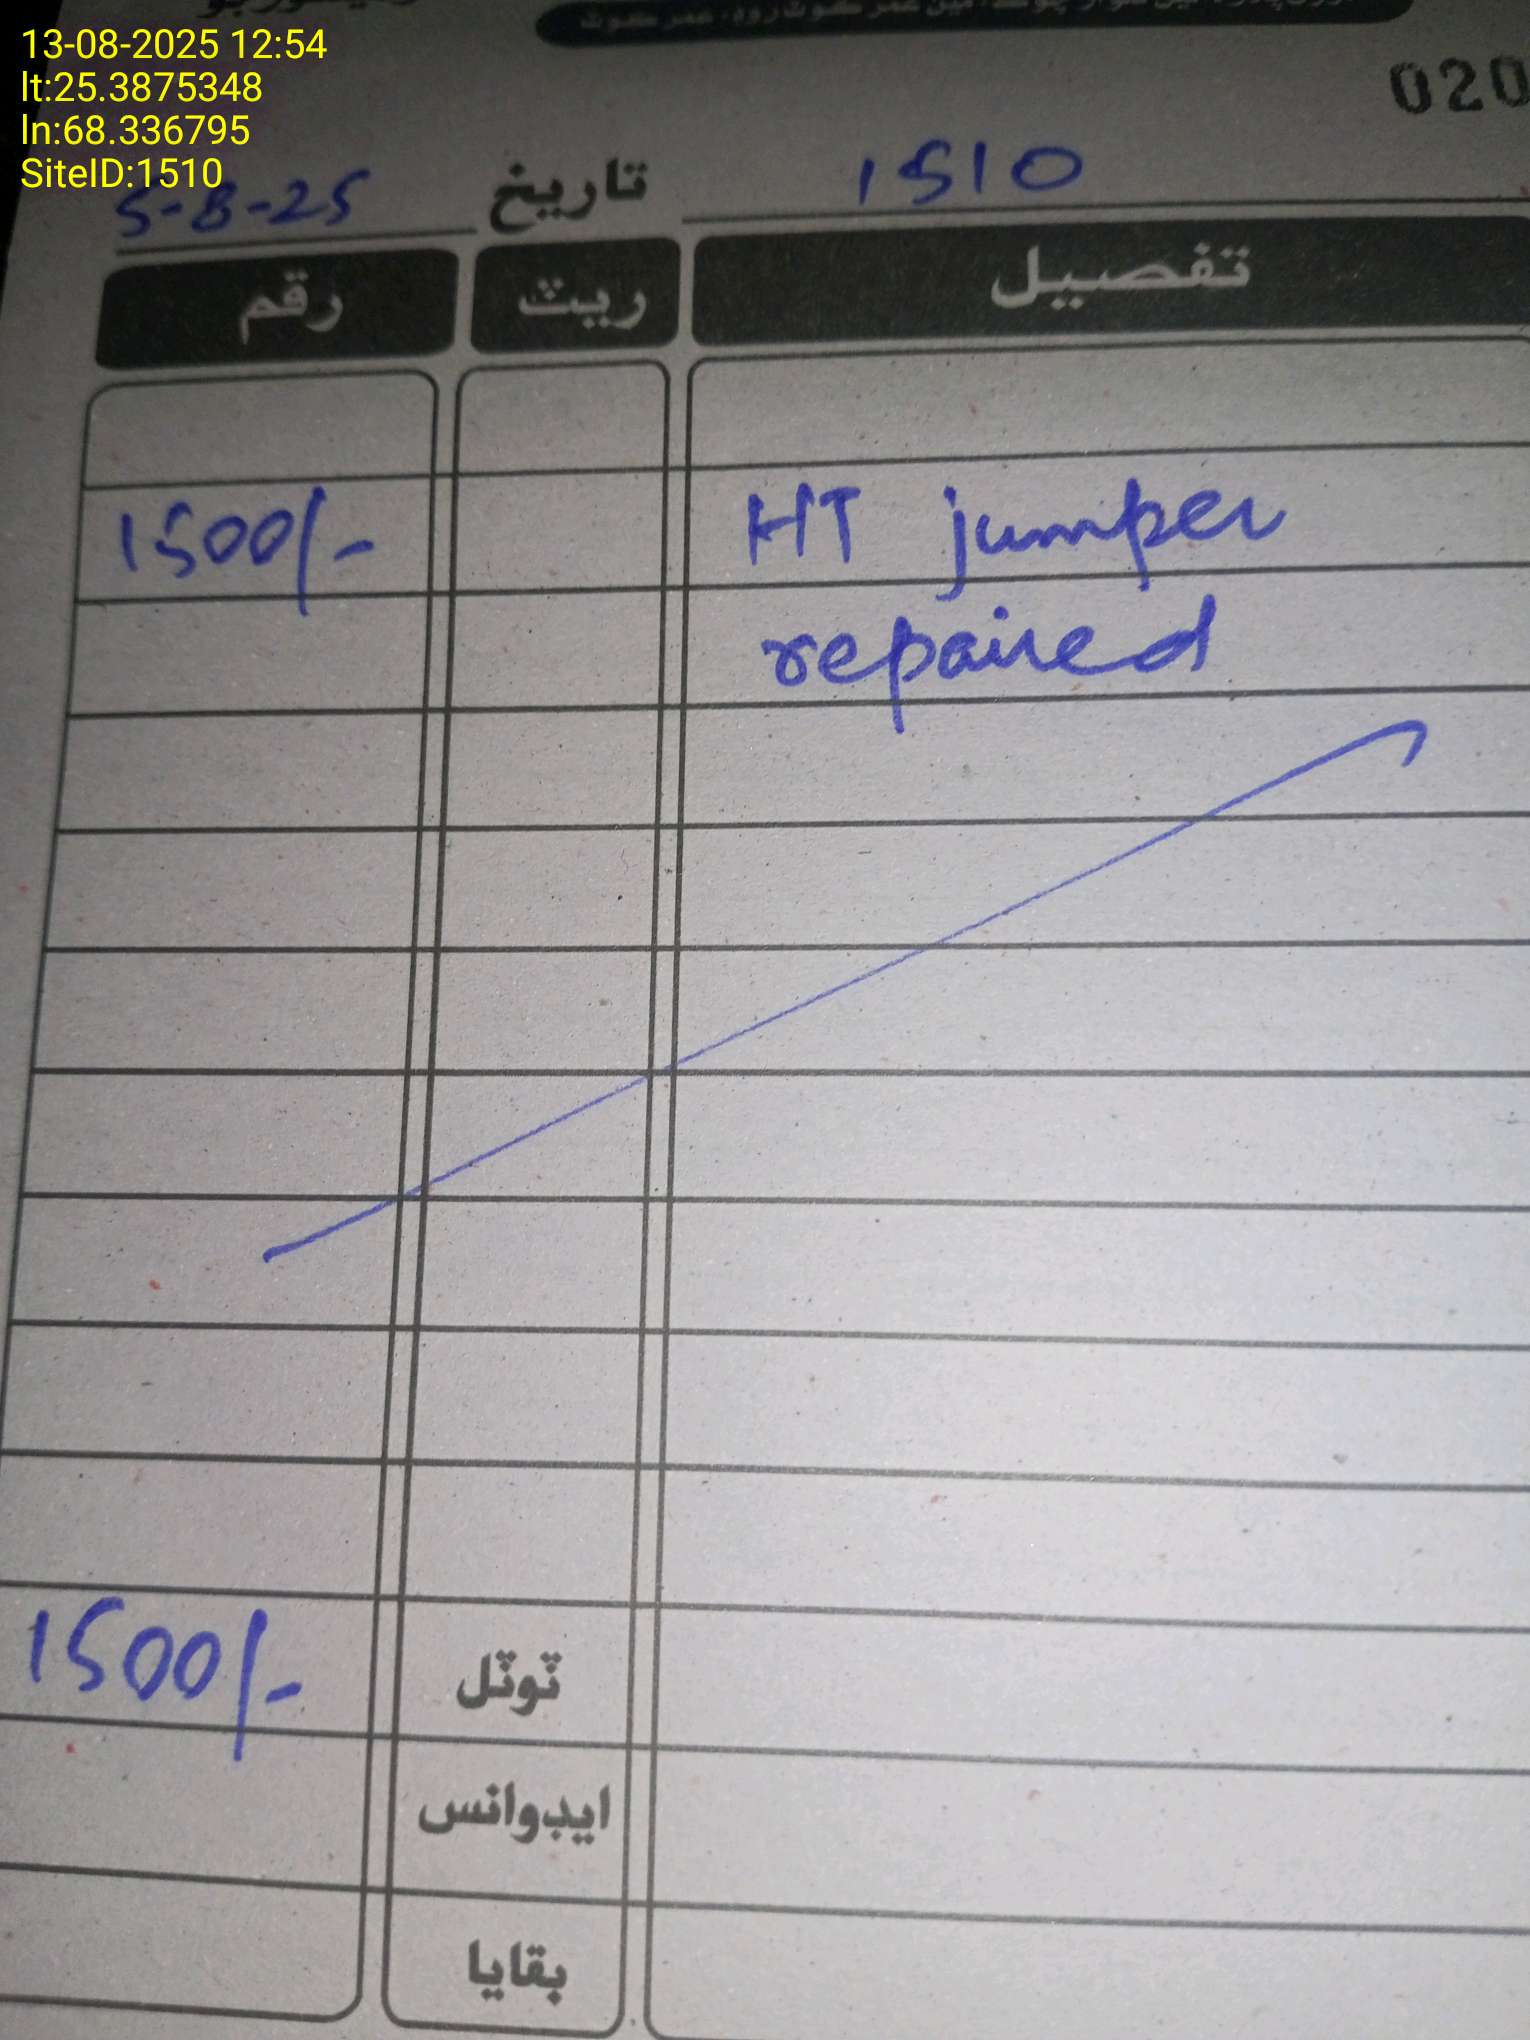 13-08-2025 12:54
lt:25.3875348
ln:68.336795
SiteID:1510
020
1510
تاريخ 5-8-25
تفصيل ريٽ رقم
HT jumper 1500/-
repaired
ٽوٽل 1500/-
ايڊوانس
بقايا